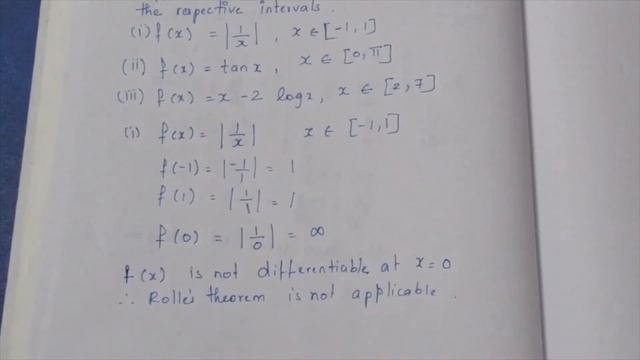 the respective intervals.
(i) f(x) = |1/x|, x ∈ [-1, 1]
(ii) f(x) = tan x, x ∈ [0, π]
(iii) f(x) = x - 2 log x, x ∈ [2, 7]
(i) f(x) = |1/x| x ∈ [-1, 1]
f(-1) = |-1/1| = 1
f(1) = |1/1| = 1
f(0) = |1/0| = ∞
f(x) is not differentiable at x = 0
∴ Rolle's theorem is not applicable.